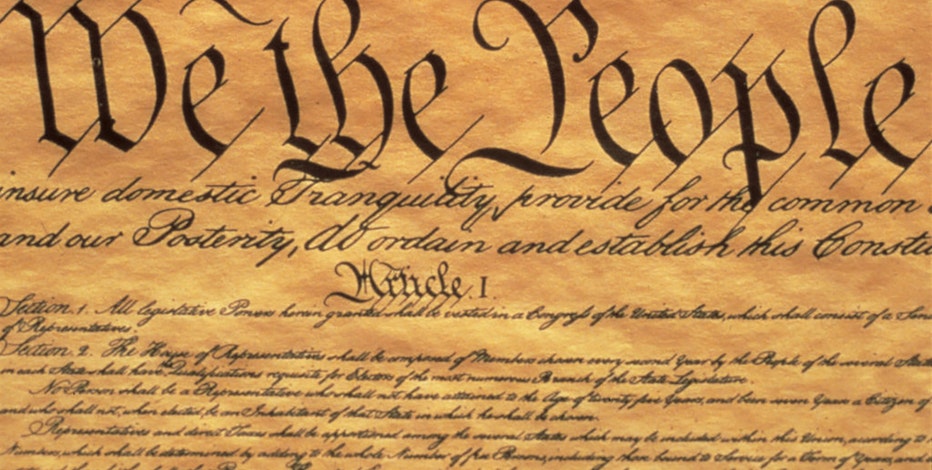 We the People
insure domestic Tranquility, provide for the common
and our Posterity, do ordain and establish this Constitu
Article. I.
Section. 1. All legislative Powers herein granted shall be vested in a Congress of the United States, which shall consist of a Sen
of Representatives.
Section. 2. The House of Representatives shall be composed of Members chosen every second Year by the People of the several Stat
in each State shall have Qualifications requisite for Electors of the most numerous Branch of the State Legislature.
No Person shall be a Representative who shall not have attained to the Age of twenty five Years, and been seven Years a Citizen of
and who shall not, when elected, be an Inhabitant of that State in which he shall be chosen.
Representatives and direct Taxes shall be apportioned among the several States which may be included within this Union, according to
Numbers, which shall be determined by adding to the whole Number of free Persons, including those bound to Service for a Term of Years, and